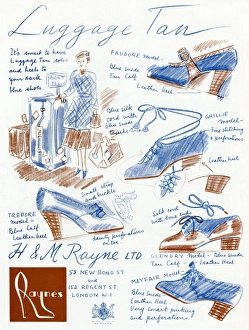 Luggage Tan
It's smart to have
Luggage Tan soles
and heels to
your dark
blue shoes
PAUDORE Model -
Blue Suede
Tan Calf
Leather Heel
Blue silk
cord with
blue suede
GHILLIE
Model -
Fine stitching
& perforations
Leather heel
Small strap
and buckle
TREDORE
Model -
Blue Calf
Leather heel
dainty perforations
on toe
Silk cord
with one end
GLENDRY Model - Blue Suede
Tan Calf - Leather Heel
H & M Rayne LTD
58 NEW BOND ST
and
152 REGENT ST.
LONDON W.1.
Raynes
MAYFAIR Model
Blue Suede
Leather Heel
Very smart pinking
and perforations